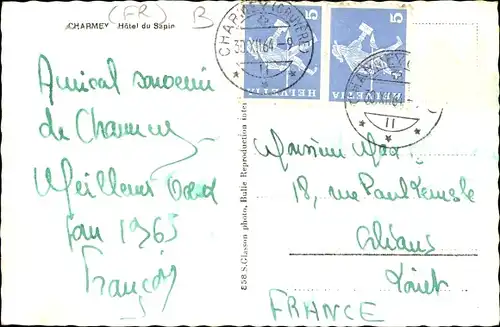 (FR.) B
CHARMEY Hôtel du Sapin
Amical souvenir
de Charmey
Meilleurs
1965
François
858 S. Glasson photo, Bulle Reproduction inter
CHARMEY (GRUYÈRE)
30.XII.64.-9
11
5
HELVETIA
5
HELVETIA
CHARMEY (
30.XII.64
11
Monsieur
18, rue Paul
Orléans
Loiret
FRANCE